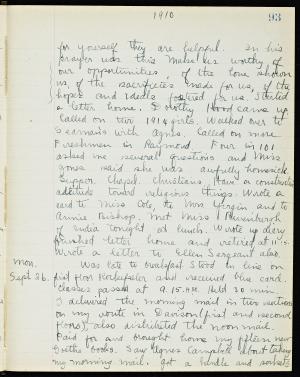 1910
93
for yourself they are helpful. In his
prayer was this "Make us worthy of
our opportunities, of the love shown
us of the sacrifices made for us, of the
hopes and ideals fostered for us. Started
a letter home. Dorothy Hood came up
Called on two 1914 girls. Walked over to
Seaman's with Agnes. Called on more
Freshmen in Raymond. Four in 101
asked me several questions and Miss
Jones said she was awfully homesick.
Supper. Chapel. Christians have a constructive
attitude toward religious things. Wrote a
card to Miss Cole, to Mrs. Virgin and to
Annie Bishop. Met Miss
of India tonight at lunch. Wrote up diary
finished letter home and retired at 11:15.
Wrote a letter to Ellen Sergeant also.
Mon. Was late to breakfast. Stood in line on
Sept. 26. first floor Rockefeller and received blue card.
Classes passed at 9.15 A.M. Held 20 min.
I delivered the morning mail in two sections
on my route in Davison (first and second
floors), also distributed the noon mail.
Paid for and brought home my fifteen new
Goethe books. Saw Agnes Campbell about taking
my morning mail. Got a bundle and some